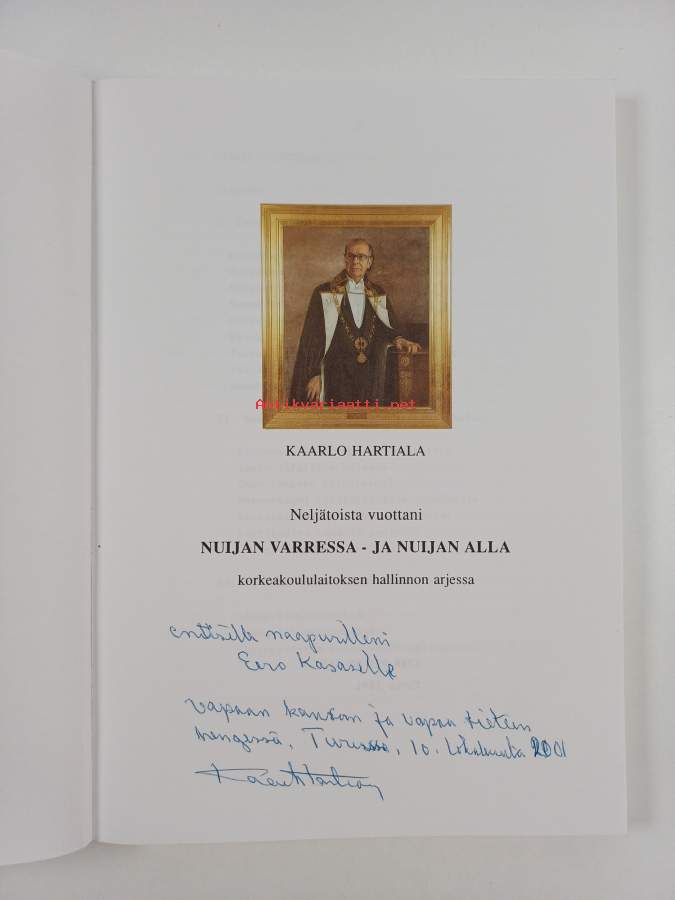 Antikvariaatti.net
KAARLO HARTIALA
Neljätoista vuottani
NUIJAN VARRESSA - JA NUIJAN ALLA
korkeakoululaitoksen hallinnon arjessa
naapurilleni
Eero Kasaselle
vapaan kansan ja vapaa tieteen
hengessä, Turussa, 10. lokakuuta 2001